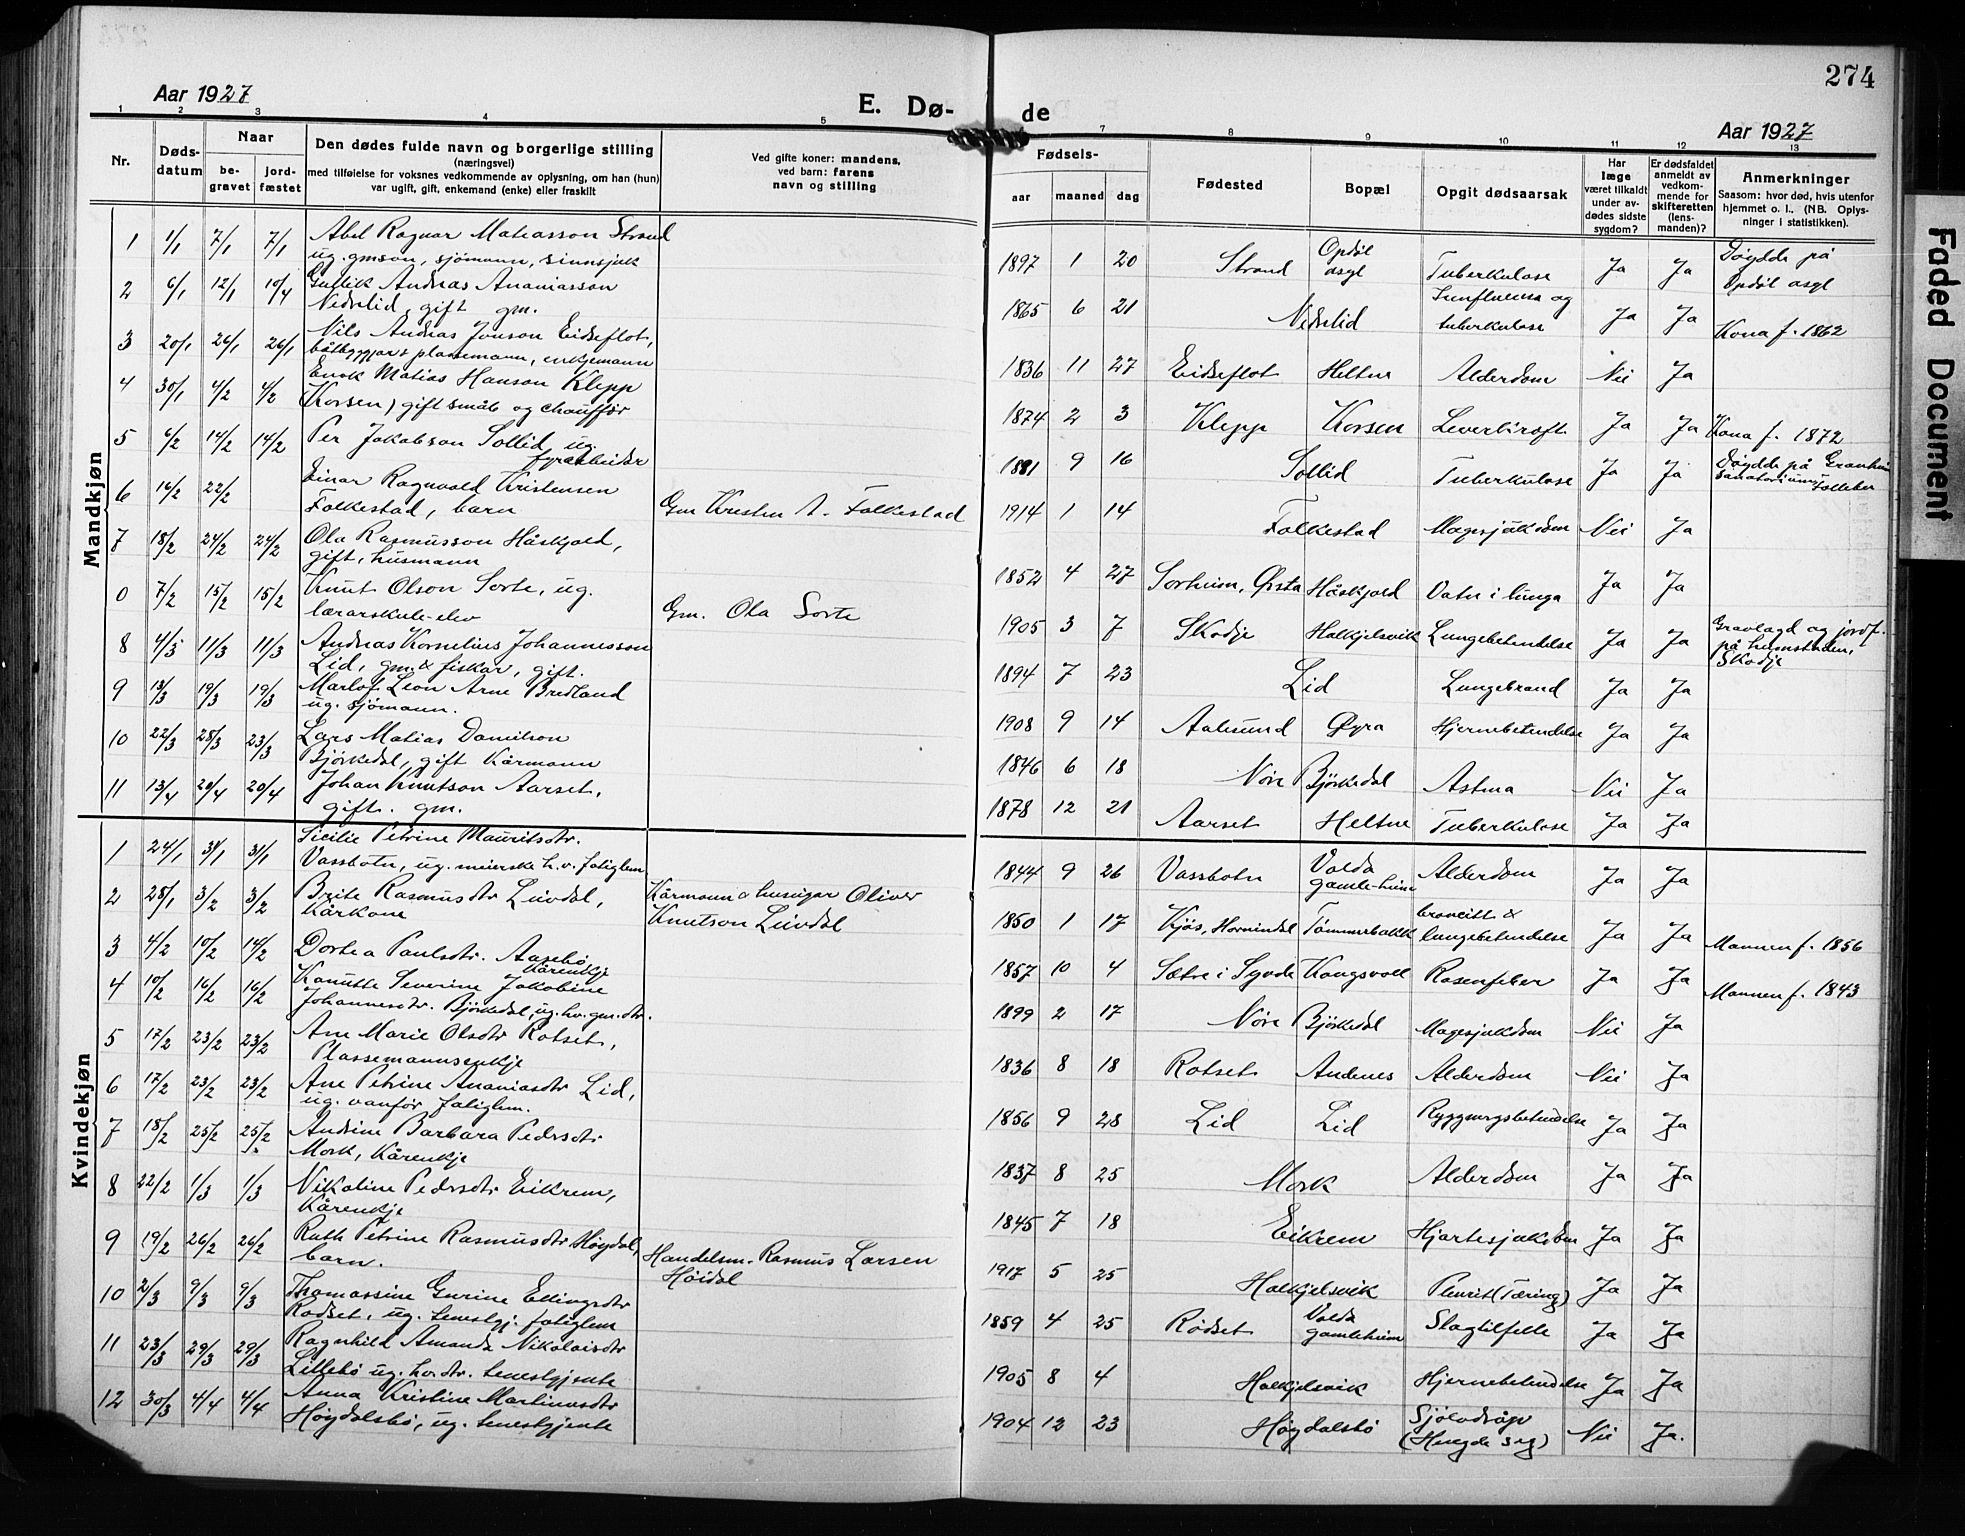 274
Aar 1927
E. Dø-
de
Aar 1927
1 2 3 4 5 7 8 9 10 11 12 13
Nr.
Døds-
datum
Naar
be-
gravet
jord-
fæstet
Den dødes fulde navn og borgerlige stilling
(næringsvei)
med tilføielse for voksnes vedkommende av oplysning, om han (hun)
var ugift, gift, enkemand (enke) eller fraskilt
Ved gifte koner: mandens,
ved barn: farens
navn og stilling
Fødsels-
aar maaned dag
Fødested
Bopæl
Opgit dødsaarsak
Har
læge
været tilkaldt
under av-
dødes sidste
sygdom?
Er dødsfaldet
anmeldt av
vedkom-
mende for
skifteretten
(lens-
manden)?
Anmerkninger
Saasom: hvor død, hvis utenfor
hjemmet o. l., (NB. Oplys-
ninger i statistikken).
Mandkjøn
1 1/1 7/1 7/1 Abel Ragnar Matiasson Strand
ug. gmson, sjømann, sinnsjuk
1897 1 20 Strand Opdøl asyl Tuberkulose Ja Ja Døydde på
Opdøl asyl
2 6/1 12/1 10/4 Gullik Andreas Ananiasson
Nedrelid, gift gm.
1865 6 21 Nedrelid Innfluensa og
tuberkulose Ja Ja Kona f. 1862
3 20/1 26/1 26/1 Nils Andreas Jonson Eidseflot,
båtbyggjar & plassemann, enkjemann
1836 11 27 Eidseflot Heltne Alderdom Nei Ja
4 30/1 4/2 4/2 Enok Matias Hanson Klepp
(Korsen) gift småb og chauffør
1874 2 3 Klepp Korsen Leverkræft Ja Ja Kona f. 1872
5 6/2 14/2 14/2 Per Jakobson Sollid, ug.
fyrarbeider
1881 9 16 Sollid Tuberkulose Ja Ja Døydde på Granheim
sanatorium, Follebu
6 16/2 22/2 Einar Ragnvald Kristensen
Folkestad, barn Gm Kristen A. Folkestad
1914 1 14 Folkestad Magesjukdom Nei Ja
7 18/2 24/2 24/2 Ola Rasmusson Håskjold,
gift, husmann
1852 4 27 Sorheim, Ørsta Håskjold Vatn i lunga Ja Ja
0 7/2 15/2 15/2 Knut Olson Sorte, ug.
lærarskule-elev Gm. Ola Sorte
1905 3 7 Skodje Halkjelsvik Lungebetendelse Ja Ja Gravlagd og jordf.
på heimstaden,
Skodje
8 4/3 11/3 11/3 Andreas Kornelius Johannesson
Lid, gm. & fiskar, gift.
1894 7 23 Lid Lungebrand Ja Ja
9 13/3 19/3 19/3 Marlof Leon Arne Bredland
ug. sjømann.
1908 9 14 Aalesund Øyra Hjernebetendelse Ja Ja
10 22/3 28/3 23/3 Lars Matias Danielson
Bjørkedal, gift Kårmann
1846 6 18 Nöre Bjørkedal Astma Nei Ja
11 13/4 20/4 20/4 Johan Knutson Aarset,
gift. gm.
1878 12 21 Aarset Heltne Tuberkulose Ja Ja
Kvindekjøn
1 24/1 31/1 31/1 Sicilie Petrine Mauritsdtr.
Vassbotn, ug. meierske h.v. fatiglem
1844 9 26 Vassbotn Volda
gamle-heim Alderdom Ja Ja
2 28/1 3/2 3/2 Brite Rasmusdtr Leivdal,
Kårkone Kårmann & huseigar Oliver
Knutson Leivdal
1850 1 17 Kjös, Hornindal Tømmerbakk broncitt &
lungebetendelse Ja Ja Mannen f. 1856
3 4/2 10/2 14/2 Dortea Paulsdtr. Aasebø
Kårenkje
1857 10 4 Sætre i Syvde Kongsvoll Rosenfeber Ja Ja Mannen f. 1843
4 10/2 16/2 16/2 Kanutte Severine Jakobine
Johannesdtr. Bjørkedal, ug. hv. gm. dtr.
1899 2 17 Nöre Bjørkedal Magesjukdom Nei Ja
5 17/2 23/2 23/2 Ane Marie Olsdtr Rotset,
Plassemannsenkje
1836 8 18 Rotset Andenes Alderdom Nei Ja
6 17/2 23/2 23/2 Ane Petrine Ananiasdtr Lid,
ug. vanfør fatiglem.
1856 9 28 Lid Lid Ryggmergsbetendelse Ja Ja
7 18/2 25/2 25/2 Andrine Barbara Pedersdtr
Mork, Kårenkje
1837 8 25 Mork Alderdom Ja Ja
8 22/2 1/3 1/3 Nikoline Pedersdtr Eikrem,
Kårenkje
1845 7 18 Eikrem Hjartesjukdom Ja Ja
9 19/2 26/2 26/2 Ruth Petrine Rasmusdtr Høydal,
barn. Handelsm. Rasmus Larsen
Höidal
1917 5 25 Halkjelsvik Pleurit (Tæring) Ja Ja
10 2/3 9/3 9/3 Thomassine Gurine Ellingsdtr
Rødset, ug. tenestgj. fatiglem
1859 4 25 Rödset Volda
gamleheim Slagtilfelle Ja Ja
11 23/3 29/3 29/3 Ragnhild Amanda Nikolaisdtr
Littlebø ug. hv. dtr. tenestgjente
1905 8 4 Halkjelsvik Hjernebetendelse Ja Ja
12 30/3 4/4 4/4 Anna Kristine Martinusdtr
Høydalsbø, ug. tenestgjente
1904 12 23 Høydalsbø Sjølvdråp
(Hengde seg) Nei Ja.
Faded Document